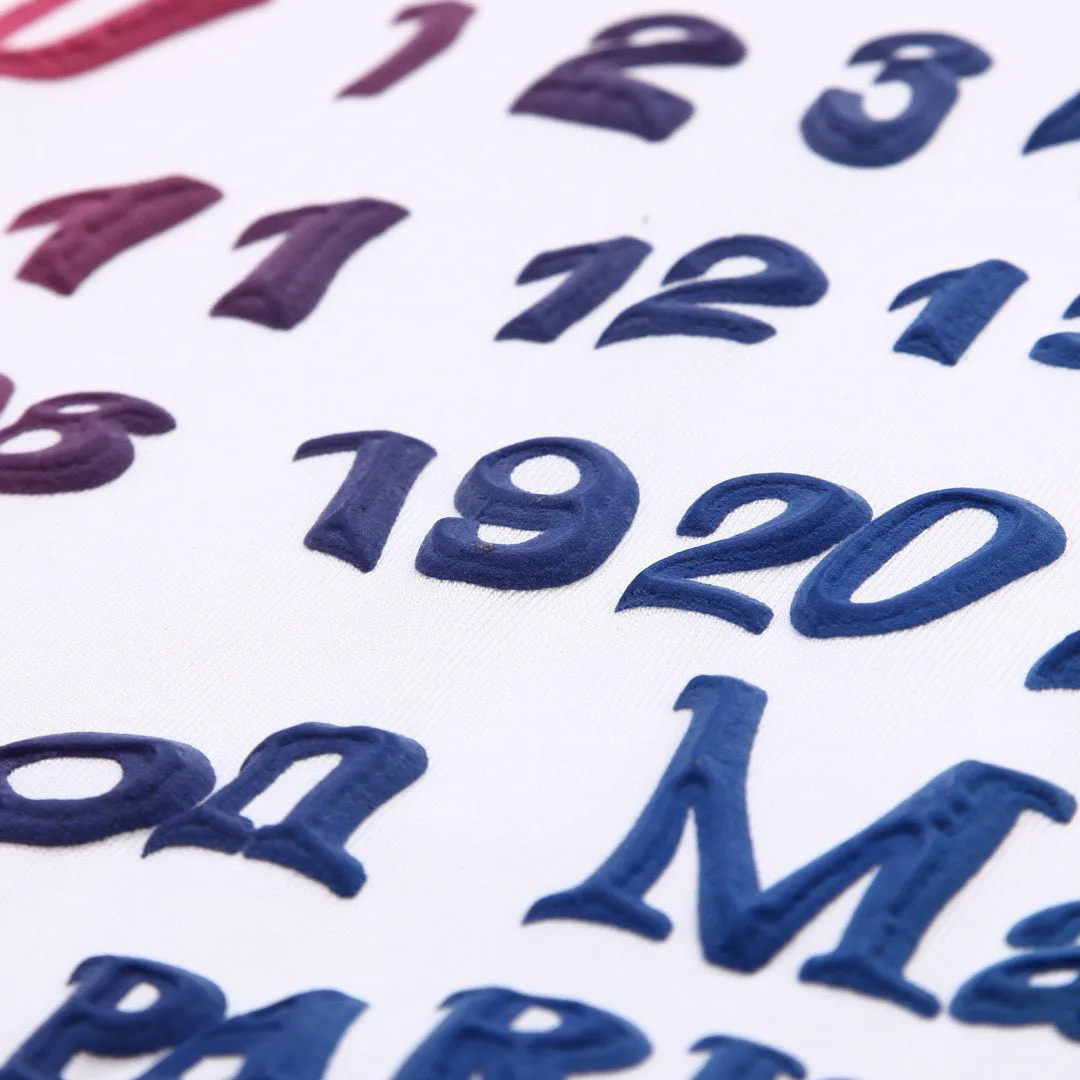 0 1 2 3
11 12 1
8 19 20
on Ma
PAR